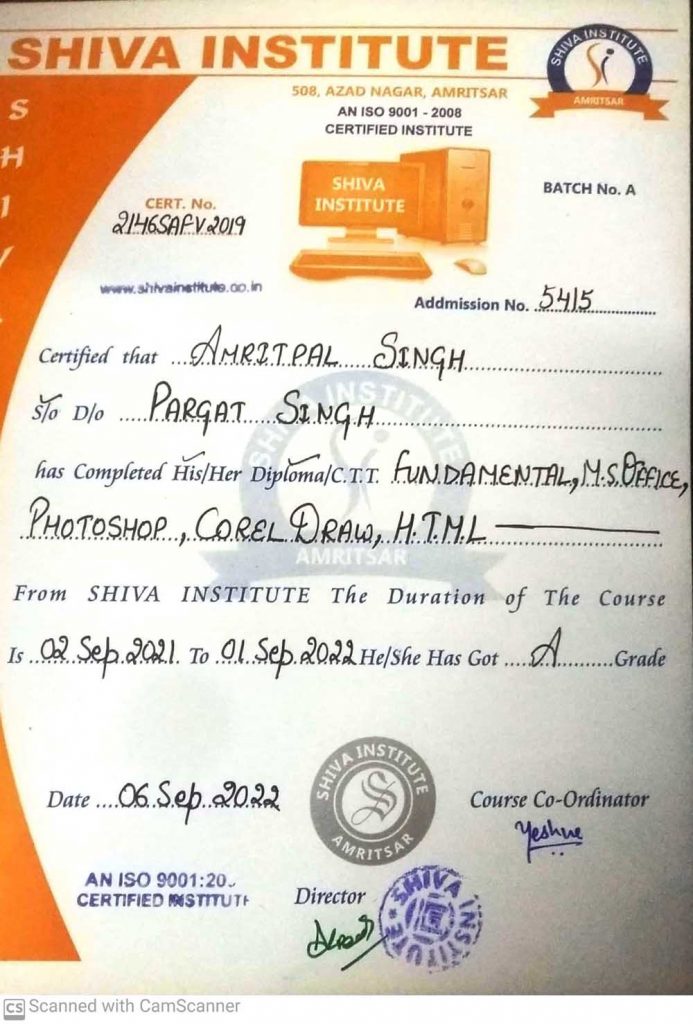 SHIVA INSTITUTE
SHIVA INSTITUTE
AMRITSAR
SHIV
508, AZAD NAGAR, AMRITSAR
AN ISO 9001 - 2008
CERTIFIED INSTITUTE
SHIVA
INSTITUTE
BATCH No. A
CERT. No.
2146SAFV2019
www.shivainstitute.co.in
Addmission No. 5415
Certified that AMRITPAL SINGH
S/o D/o PARGAT SINGH
SHIVA INSTITUTE
has Completed His/Her Diploma/C.T.T. FUNDAMENTAL, M.S.OFFICE,
PHOTOSHOP, COREL DRAW, H.T.M.L
AMRITSAR
From SHIVA INSTITUTE The Duration of The Course
Is 02 Sep. 2021. To 01 Sep. 2022 He/She Has Got A Grade
SHIVA INSTITUTE
AMRITSAR
Date 06 Sep. 2022
Course Co-Ordinator
Yeshue
AN ISO 9001:20
CERTIFIED INSTITUTE
Director
SHIVA INSTITUTE
CS Scanned with CamScanner